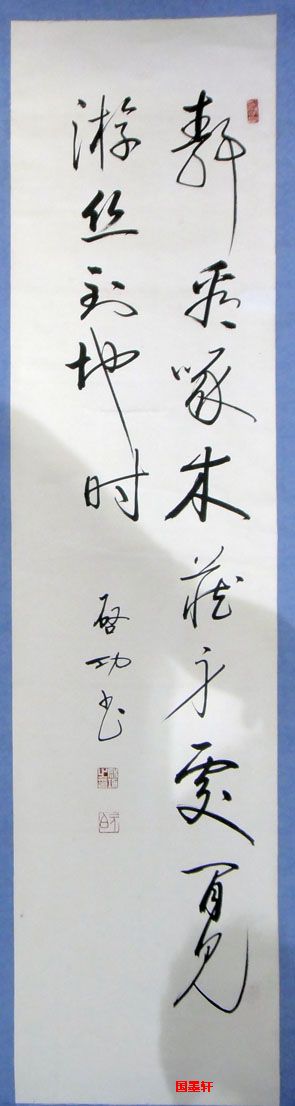 静看啄木藏身处闲见
游丝到地时
启功书
国墨轩